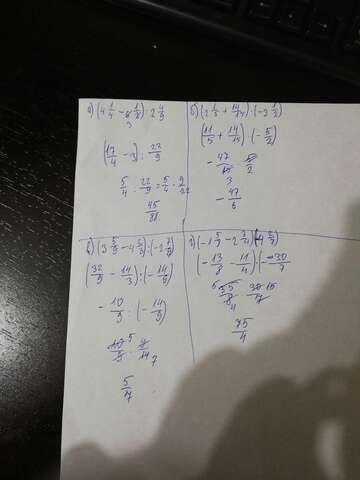 а) (4 1/4 − 1/8) : 2 4/9
3
(17/4 − 3) : 22/9
5/4 : 22/9 = 5/4 · 9/22
45/88
б) (2 1/5 + 14/15) · (−2 1/2)
(11/5 + 14/15) · (−5/2)
− 47/15 · 5/2
3
− 47/6
в) (3 5/9 − 4 2/3) : (−2 7/9)
(32/9 − 14/3) : (−14/9)
− 10/9 : (−14/9)
10/9 5 · 9/14 7
5/7
г) (−1 5/8 − 2 3/4) · (−4 2/7)
(−13/8 − 11/4) · (−30/7)
5 35/8 · 30/7 15
4
75/4